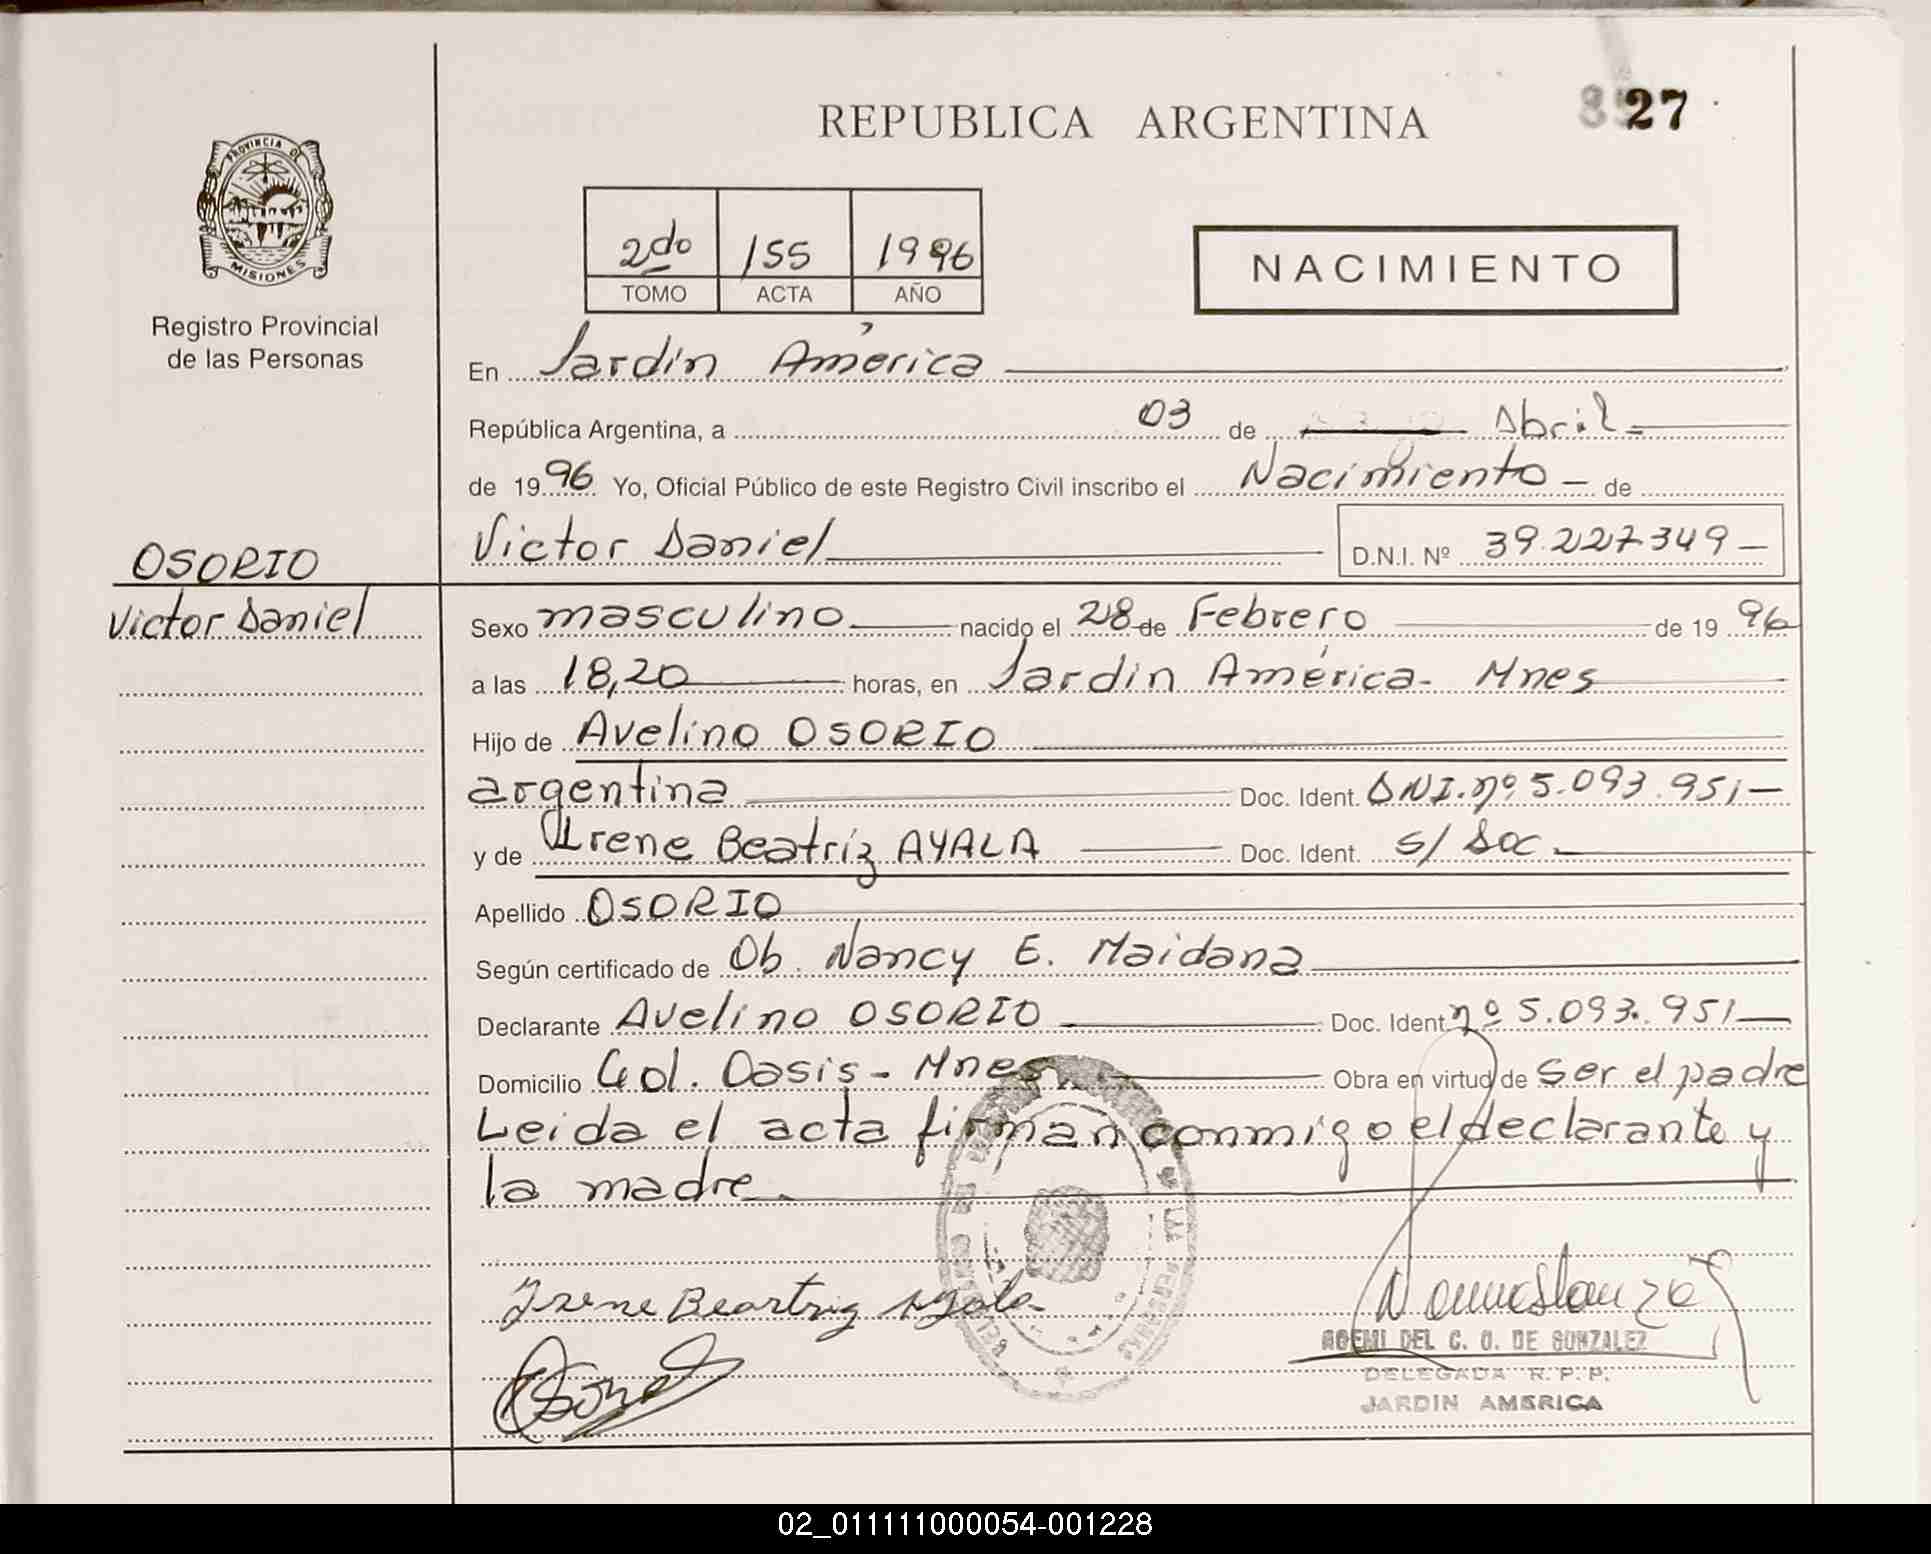 REPUBLICA ARGENTINA
27
PROVINCIA DE
MISIONES
Registro Provincial
de las Personas
2do 155 1996
TOMO ACTA AÑO
NACIMIENTO
En Jardín América
República Argentina, a 03 de Abril
de 1996 Yo, Oficial Público de este Registro Civil inscribo el Nacimiento de
Victor Daniel D.N.I. Nº 39.227.349
OSORIO
Victor Daniel
Sexo masculino nacido el 28 de Febrero de 1996
a las 18,20 horas, en Jardin América - Mnes
Hijo de Avelino OSORIO
argentina Doc. Ident. DNI. nº 5.093.951
y de Irene Beatríz AYALA Doc. Ident. s/ Doc
Apellido OSORIO
Según certificado de Ob. Nancy E. Maidana
Declarante Avelino OSORIO Doc. Ident nº 5.093.951
Domicilio Col. Oasis - Mnes Obra en virtud de Ser el padre
Leida el acta firman conmigo el declarante y
la madre.
Irene Beartriz Ayala
NOEMI DEL C. O. DE GONZALEZ
DELEGADA R. P. P.
JARDIN AMERICA
02_011111000054-001228